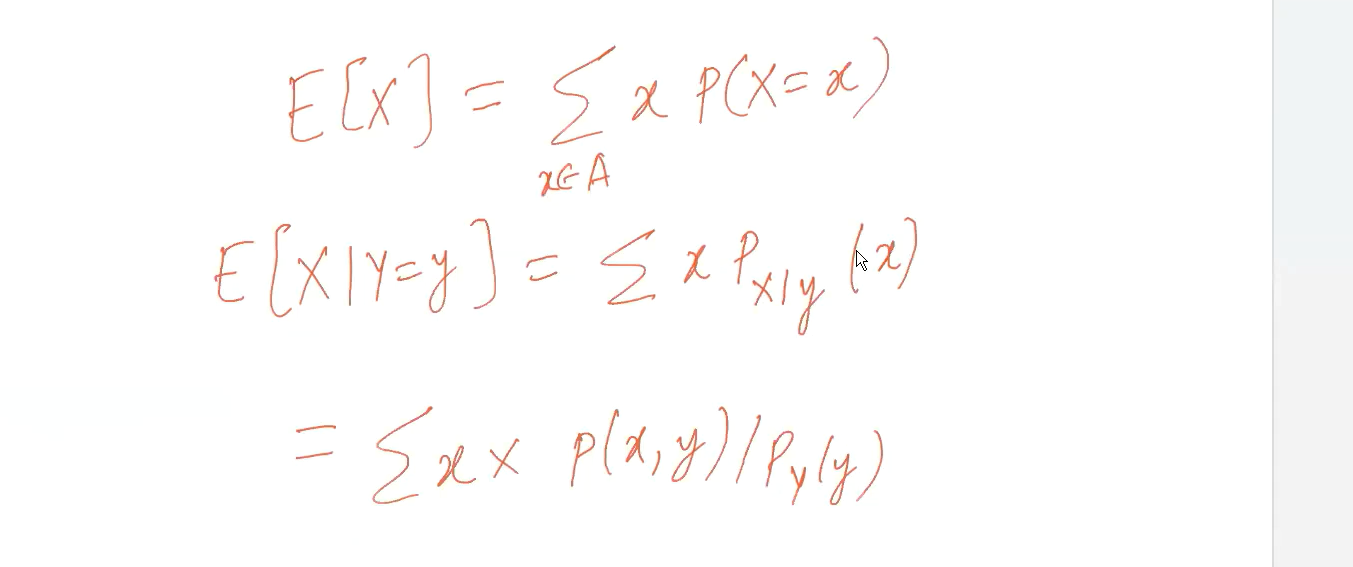 E[X] = ∑ x P(X=x)
x∈A
E[X|Y=y] = ∑ x P_{X|y}(x)
= ∑ x × p(x,y)/P_Y(y)